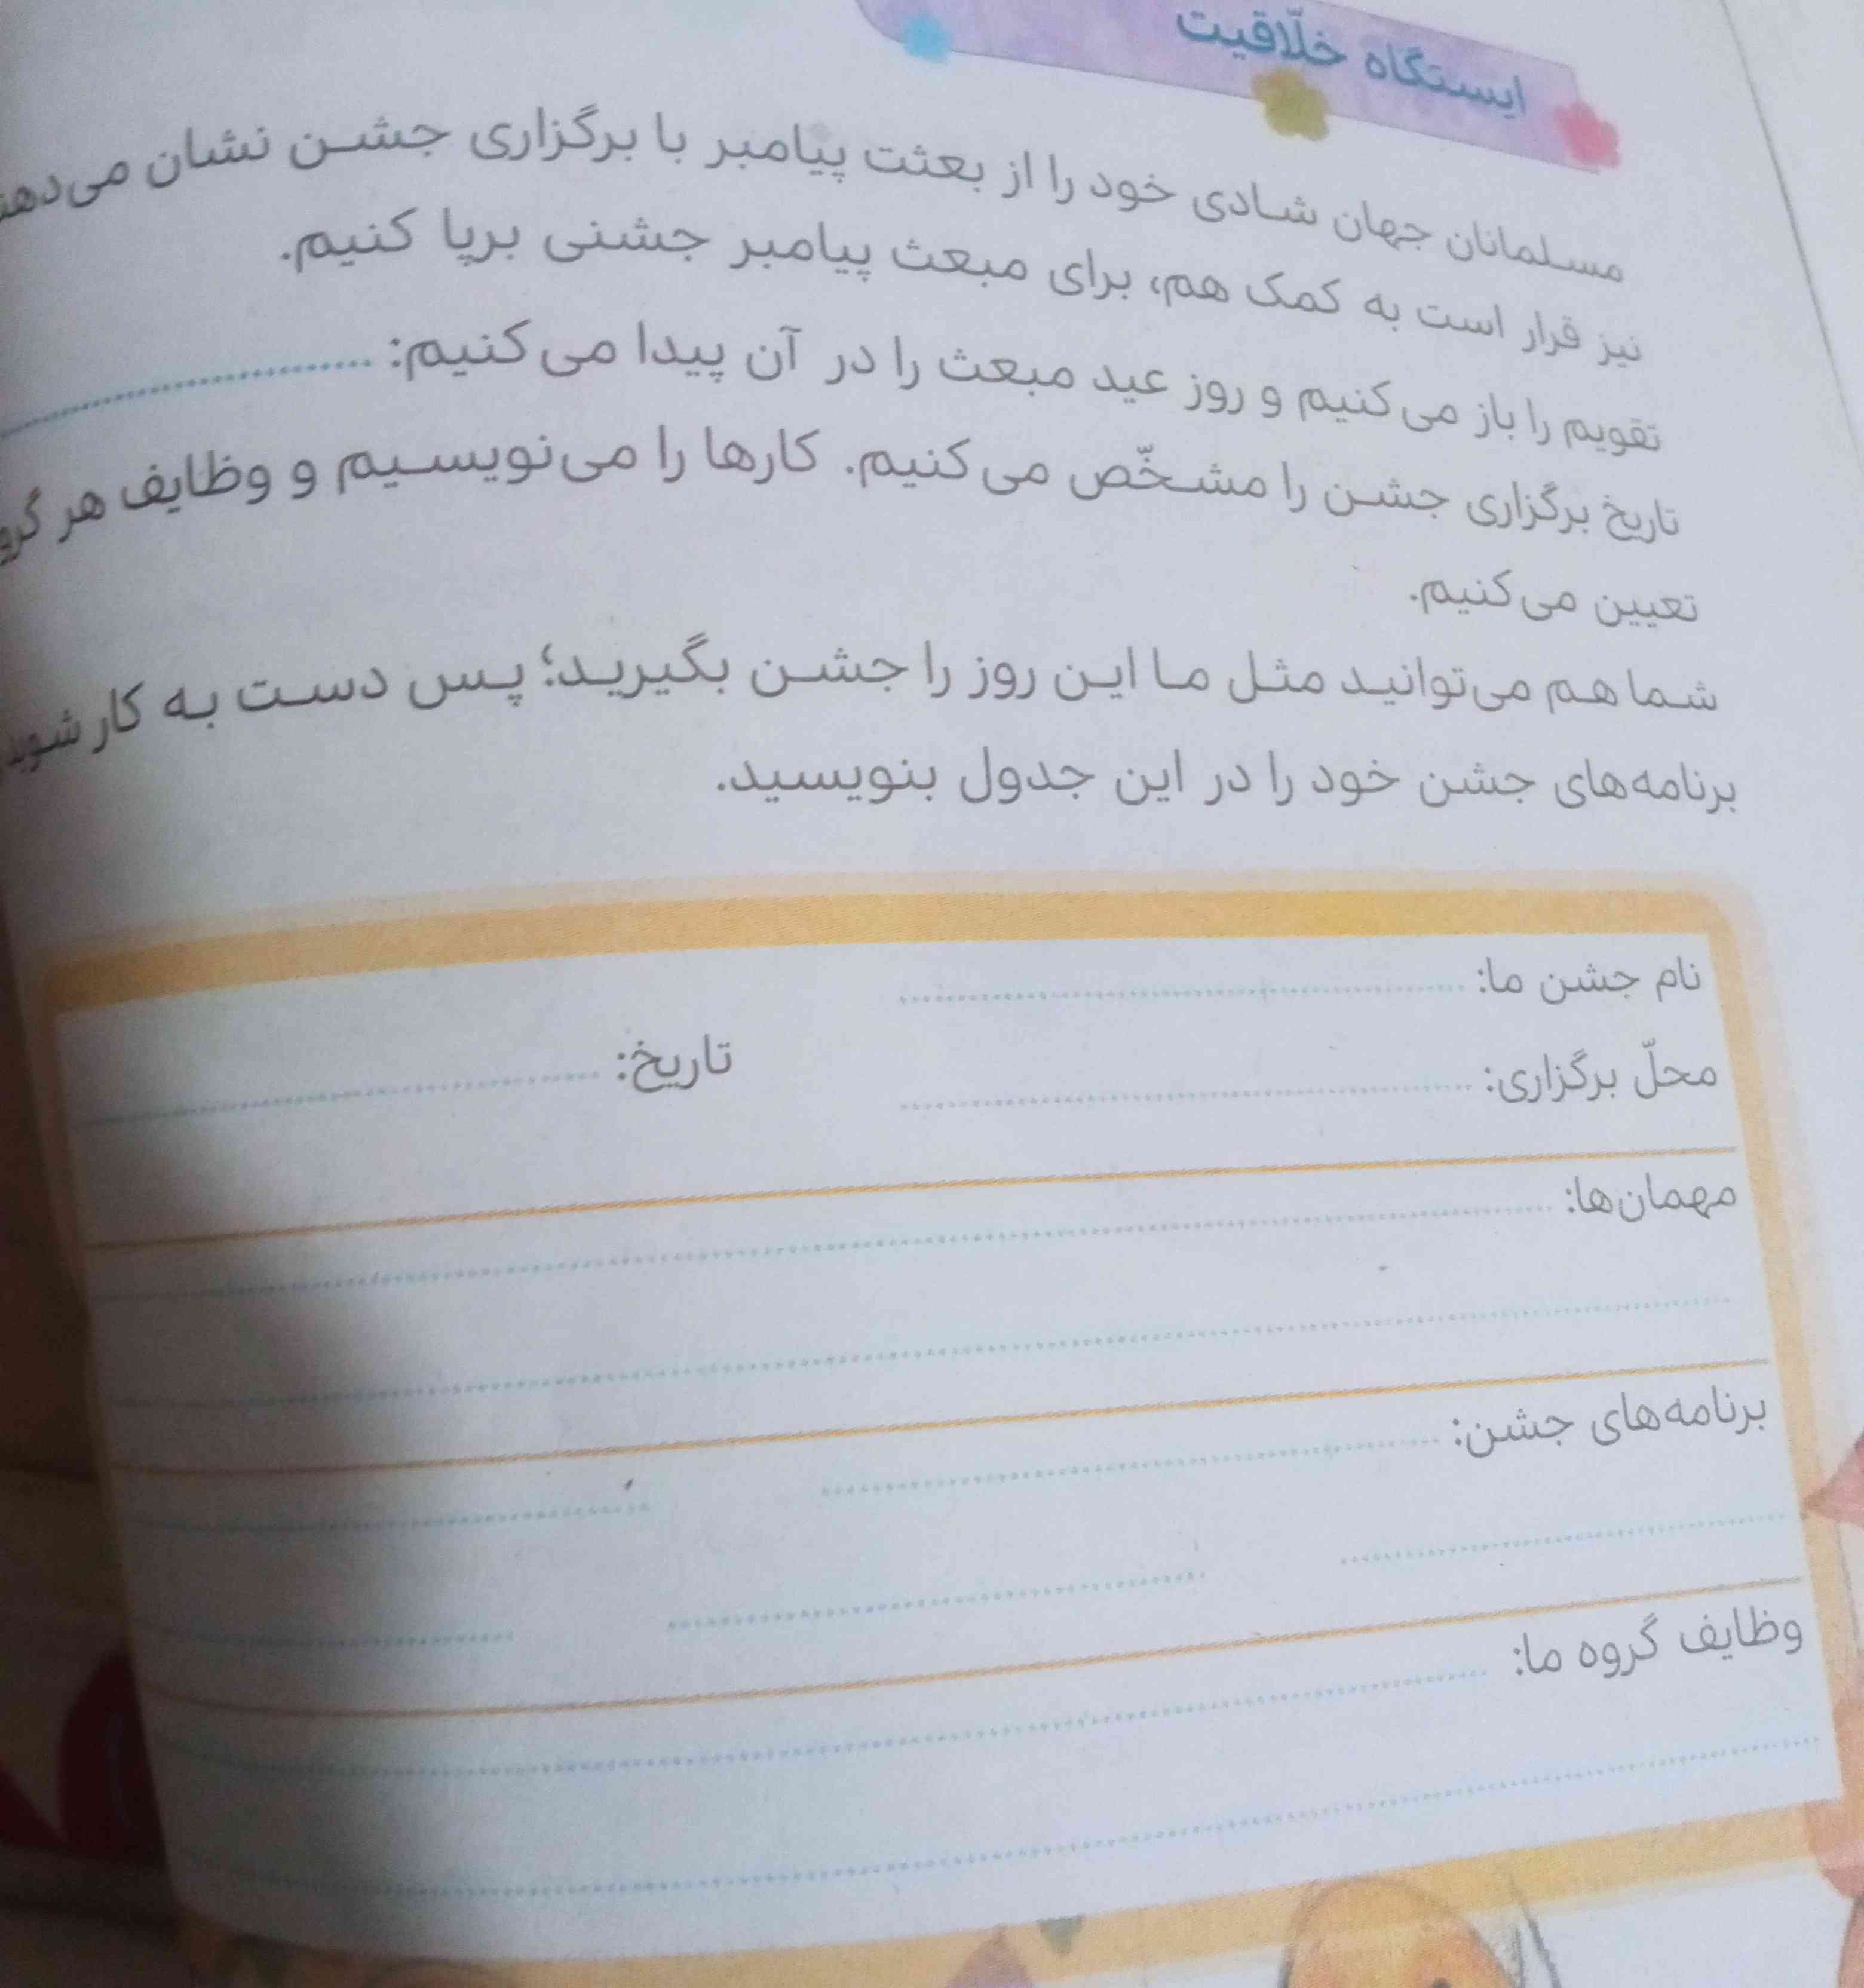 ایستگاه خلّاقیت
مسلمانان جهان شادی خود را از بعثت پیامبر با برگزاری جشن نشان
نیز قرار است به کمک هم، برای مبعث پیامبر جشنی برپا کنیم.
تقویم را باز می‌کنیم و روز عید مبعث را در آن پیدا می‌کنیم:
تاریخ برگزاری جشن را مشخّص می‌کنیم. کارها را می‌نویسیم و وظایف هر
تعیین می‌کنیم.
شما هم می‌توانید مثل ما این روز را جشن بگیرید؛ پس دست به کار شوید
برنامه‌های جشن خود را در این جدول بنویسید.
نام جشن ما:
محلّ برگزاری: تاریخ:
مهمان‌ها:
برنامه‌های جشن:
وظایف گروه ما: